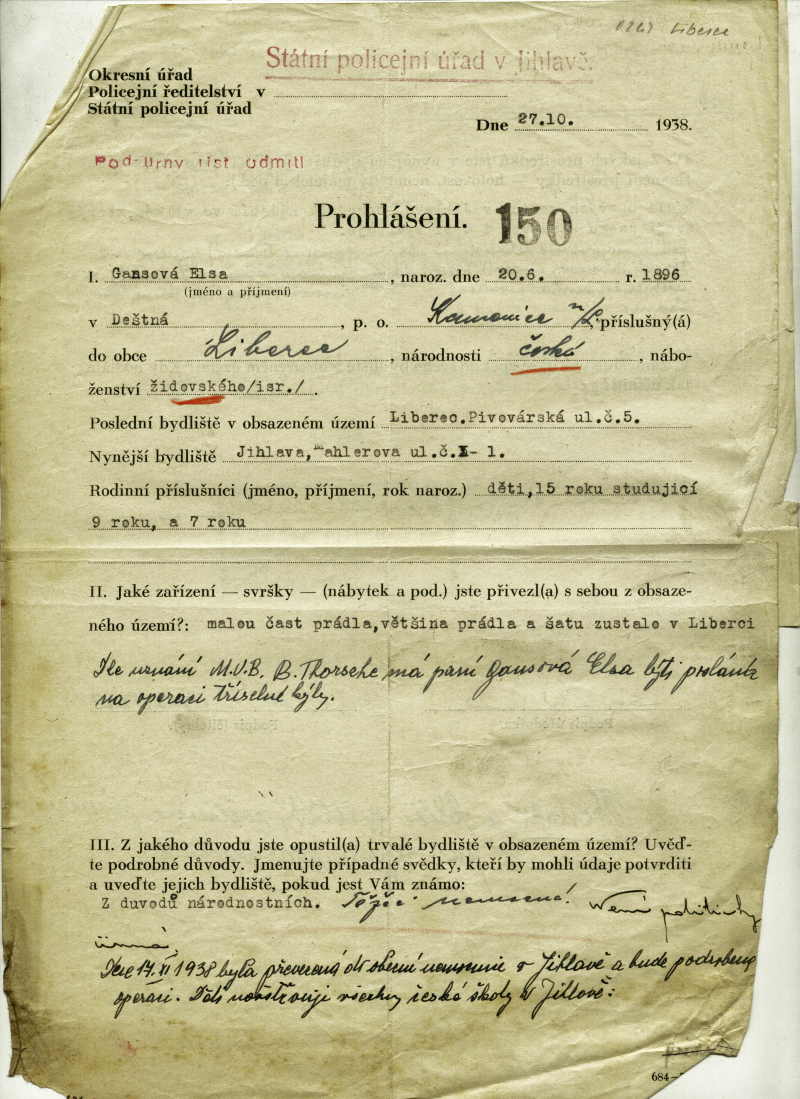 Liberec
Státní policejní úřad v Jihlavě.
Okresní úřad
Policejní ředitelství v
Státní policejní úřad
Dne 27.10. 1938.
odmítl
Prohlášení. 150
I. Gansová Elsa, naroz. dne 20.6. r. 1896
(jméno a příjmení)
v Deštná, p. o. Kamenice n/L. příslušný(á)
do obce Liberec, národnosti česká, nábo-
ženství židovského/isr./.
Poslední bydliště v obsazeném území Liberec.Pivovárská ul.č.5.
Nynější bydliště Jihlava,Mahlerova ul.č. 1.
Rodinní příslušníci (jméno, příjmení, rok naroz.) děti,15 roku studující
9 roku, a 7 roku
II. Jaké zařízení — svršky — (nábytek a pod.) jste přivezl(a) s sebou z obsaze-
ného území?: malou část prádla,většina prádla a šatu zustalo v Liberci
Dle uznání M.U.D. B. má paní Gansová Elsa býti poslána
na operaci tříselné kýly.
III. Z jakého důvodu jste opustil(a) trvalé bydliště v obsazeném území? Uveď-
te podrobné důvody. Jmenujte případné svědky, kteří by mohli údaje potvrditi
a uveďte jejich bydliště, pokud jest Vám známo:
Z duvodů národnostních. nemocná! Není politicky
činná.
Dne 17. XI 1938 byla převezena do nemocnice v Jihlavě a bude podrobena
operaci. Děti navštěvují všechny české školy v Jihlavě.
684—